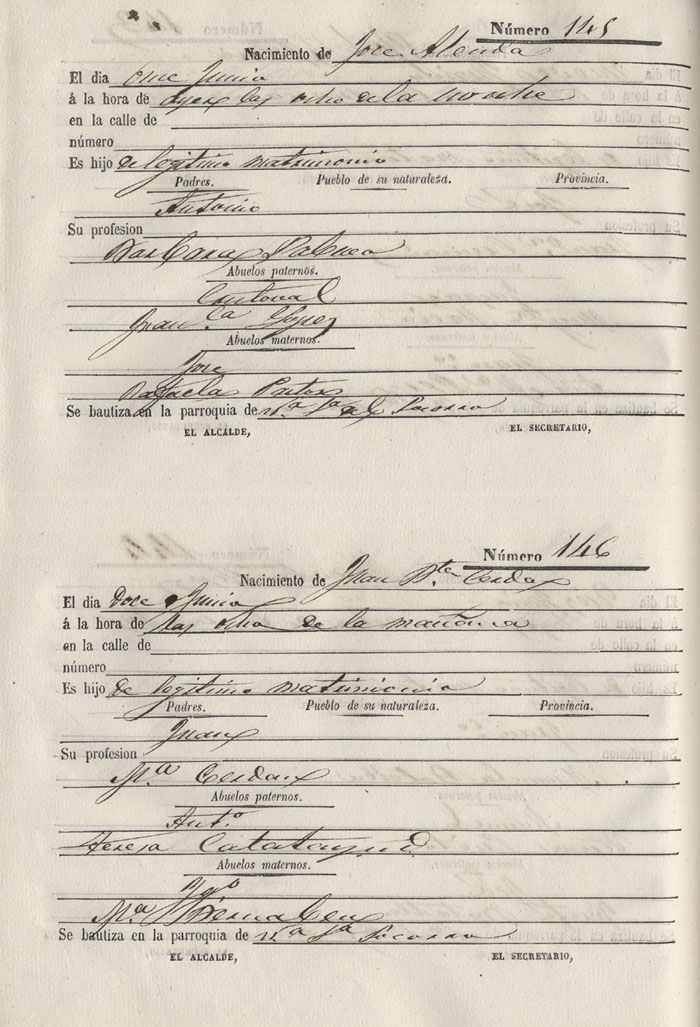 Número 145
Nacimiento de Jose Alenda
El dia once Junio
á la hora de ayer las ocho de la noche
en la calle de
número
Es hijo de legitimo matrimonio
Padres. Pueblo de su naturaleza. Provincia.
Antonio
Su profesion
Barbara
Abuelos paternos.
Cristoval
Juan.ca Lopez
Abuelos maternos.
Jose
Rafaela
Se bautiza en la parroquia de N.ra S.ra del Socorro
EL ALCALDE, EL SECRETARIO,
Número 146
Nacimiento de Juan B.ta Cerdax
El dia Doce Junio
á la hora de las ocho de la mañana
en la calle de
número
Es hijo de legitimo matrimonio
Padres. Pueblo de su naturaleza. Provincia.
Juan
Su profesion
M.a Cerdax
Abuelos paternos.
Ant.o
Teresa Catatayud
Abuelos maternos.
M.a Bernabeu
Se bautiza en la parroquia de N.ra S.ra Socorro
EL ALCALDE, EL SECRETARIO,